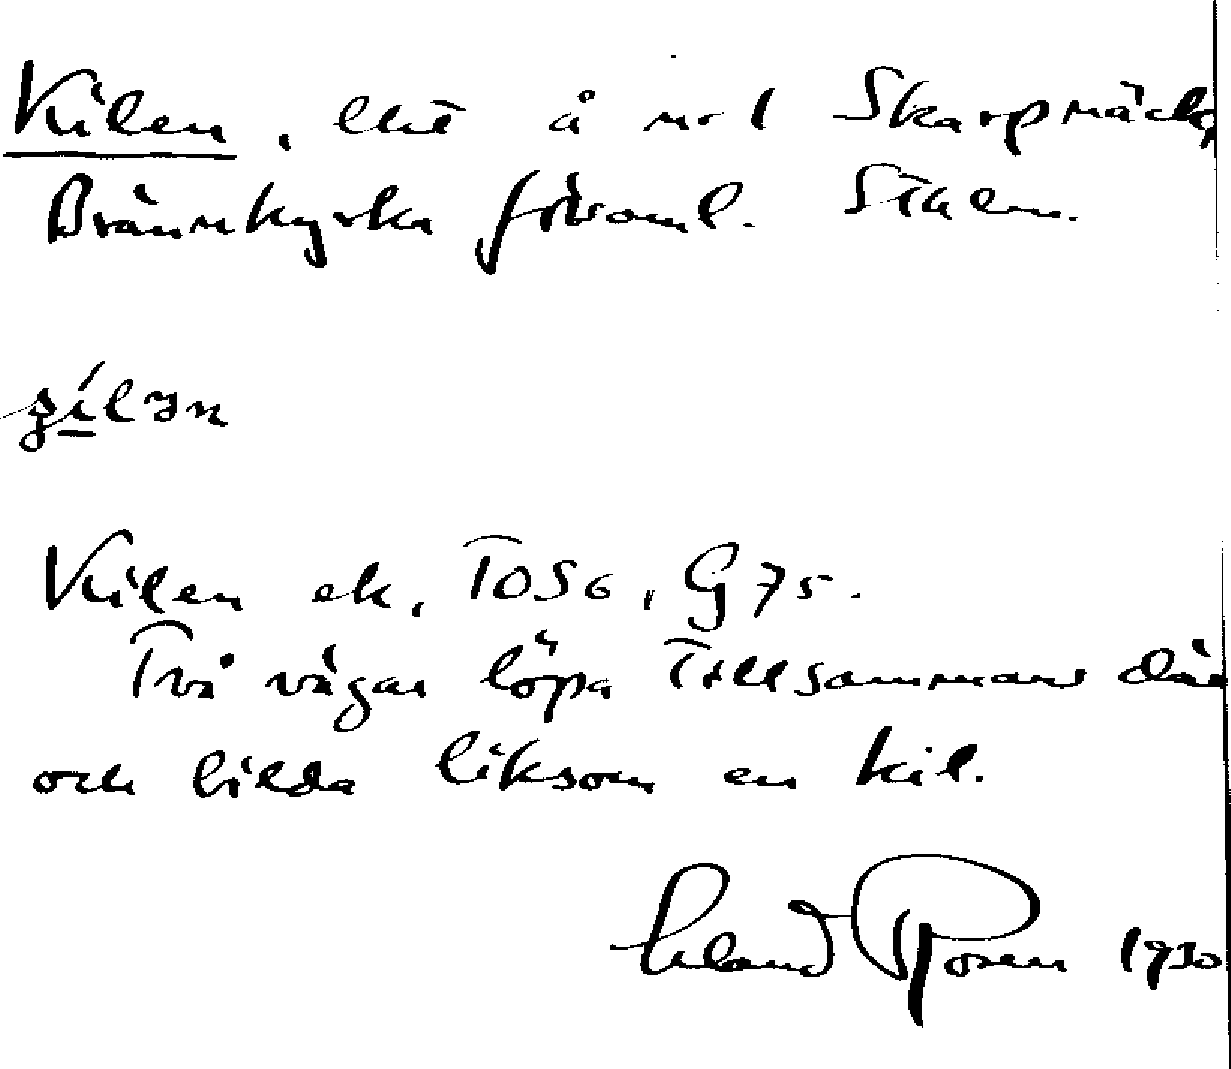 Kilen, lht å nr 1 Skarpnäck,
Brännkyrka förs:oml. Sthlm.
Kilen ek. T056, G75.
Två vägar löpa tillsammans där
och bilda liksom en kil.
Erland Rosen 1930